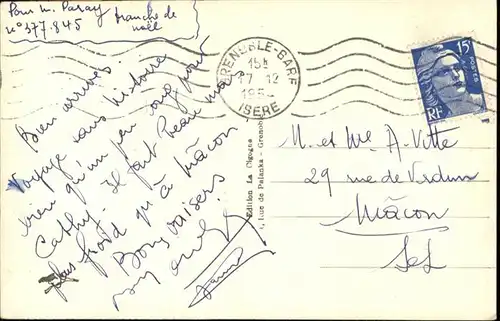 Pour M. Paray tranche de
n° 377.845 noël
Bien arrivés.
Voyage sans histoire
bien qu'un peu long pour
Cathy. Il fait beau mais
plus froid qu'à Mâcon
Bons baisers
GRENOBLE-GARE
15H
17 12
195
ISERE
15F
POSTES
RF
Edition La Cigogne
, Rue de Palanka - Grenoble
M. et Me A. Vitte
29 rue de Verdun
Mâcon
S et L